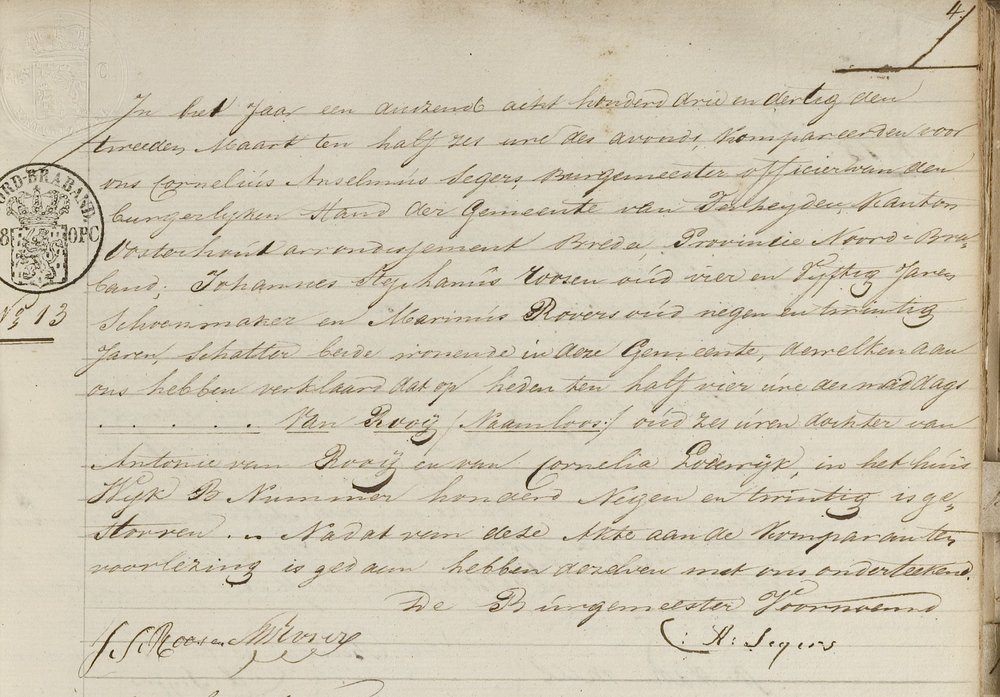 4
In het Jaar een duizend acht honderd drie en dertig den
tweeden Maart ten half zes ure des avonds, kompareerden voor
ons Cornelius Anselmus Segers, Burgemeester officier van den
burgerlyken Stand der Gemeente van Terheyden, Kanton
Oosterhout arrondissement Breda, Provincie Noord=Bra=
band, Johannes Stephanus Roosen oud vier en Vyftig Jaren,
NORD-BRABAND
8 OPC
No 13
Schoenmaker en Marinus Rovers oud negen en twintig
Jaren, Schatter beide wonende in deze Gemeente, dewelken aan
ons hebben verklaard dat op heden ten half vier ure des middags
. . . . . . Van Rooÿ /Naamloos:/ oud zes uren dochter van
Antonie van Rooÿ en van Cornelia Lodewijk, in het huis
Wyk B Nummer honderd Negen en twintig is ge=
storven . .. Nadat van deze Akte aan de Komparanten
voorlezing is gedaan hebben dezelven met ons onderteekend.
De Burgemeester Voornoemd
J S Roosen MRovers
C: A: Segers